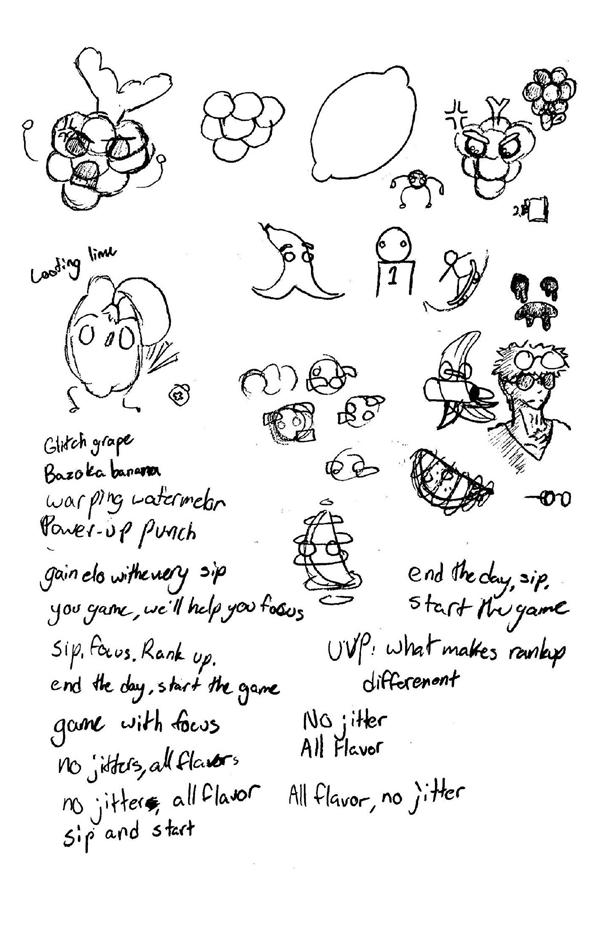 Loading lime
1
Glitch grape
Bazoka banana
warping watermelon
Power-up punch
gain elo withevery sip
you game, we'll help you focus
end the day, sip,
start the game
sip. focus. Rank up.
UVP: what makes rankup
differenont
end the day, start the game
game with focus
No jitter
All Flavor
no jitters, all flavors
no jitters, all flavor
All flavor, no jitter
sip and start